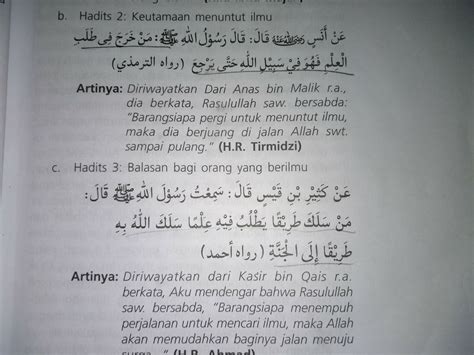 b. Hadits 2: Keutamaan menuntut ilmu
عَنْ أَنَسٍ ﷺ قَالَ: قَالَ رَسُوْلُ اللهِ ﷺ: مَنْ خَرَجَ فِى طَلَبِ
الْعِلْمِ فَهُوَ فِيْ سَبِيْلِ اللهِ حَتَّى يَرْجِعَ (رواه الترمذي)
Artinya: Diriwayatkan Dari Anas bin Malik r.a.,
dia berkata, Rasulullah saw. bersabda:
"Barangsiapa pergi untuk menuntut ilmu,
maka dia berjuang di jalan Allah swt.
sampai pulang." (H.R. Tirmidzi)
c. Hadits 3: Balasan bagi orang yang berilmu
عَنْ كَثِيْرِ بْنِ قَيْسٍ قَالَ: سَمِعْتُ رَسُوْلَ اللهِ ﷺ قَالَ:
مَنْ سَلَكَ طَرِيْقًا يَطْلُبُ فِيْهِ عِلْمًا سَلَكَ اللهُ بِهِ
طَرِيْقًا إِلَى الْجَنَّةِ (رواه أحمد)
Artinya: Diriwayatkan dari Kasir bin Qais r.a.
berkata, Aku mendengar bahwa Rasulullah
saw. bersabda, "Barangsiapa menempuh
perjalanan untuk mencari ilmu, maka Allah
akan memudahkan baginya jalan menuju
surga." (H.R. Ahmad)